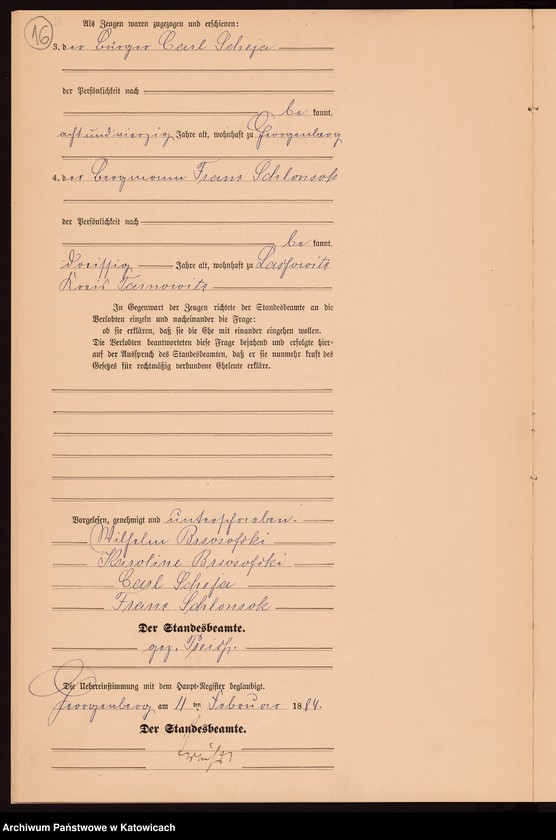 16
Als Zeugen waren zugezogen und erschienen:
3. der Bürger Carl Scheja
der Persönlichkeit nach
be kannt,
achtundvierzig Jahre alt, wohnhaft zu Georgenberg
4. der Bergmann Franz Schlonsok
der Persönlichkeit nach
be kannt,
dreissig Jahre alt, wohnhaft zu Lassowitz
Kreis Tarnowitz
In Gegenwart der Zeugen richtete der Standesbeamte an die
Verlobten einzeln und nacheinander die Frage:
ob sie erklären, daß sie die Ehe mit einander eingehen wollen.
Die Verlobten beantworteten diese Frage bejahend und erfolgte hier-
auf der Ausspruch des Standesbeamten, daß er sie nunmehr kraft des
Gesetzes für rechtmäßig verbundene Eheleute erkläre.
Vorgelesen, genehmigt und unterschrieben.
Wilhelm
Karoline
Carl Scheja
Franz Schlonsok
Der Standesbeamte.
gez.
Die Uebereinstimmung mit dem Haupt-Register beglaubigt.
Georgenberg am 11 ten Februar 1884.
Der Standesbeamte.
Archiwum Państwowe w Katowicach